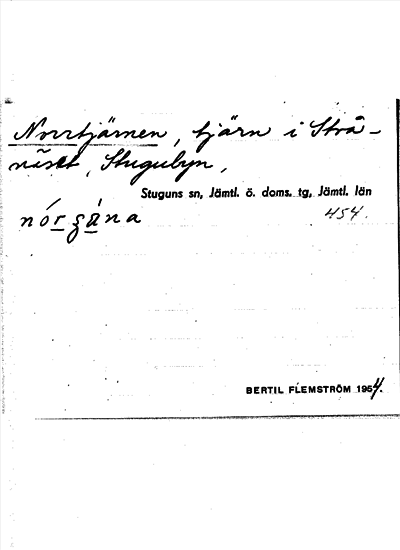 Norrtjärnen, tjärn i Strå-
näset, Stugubyn,
Stuguns sn, Jämtl. ö. doms. tg, Jämtl. län
nórgåna 454.
BERTIL FLEMSTRÖM 1954.